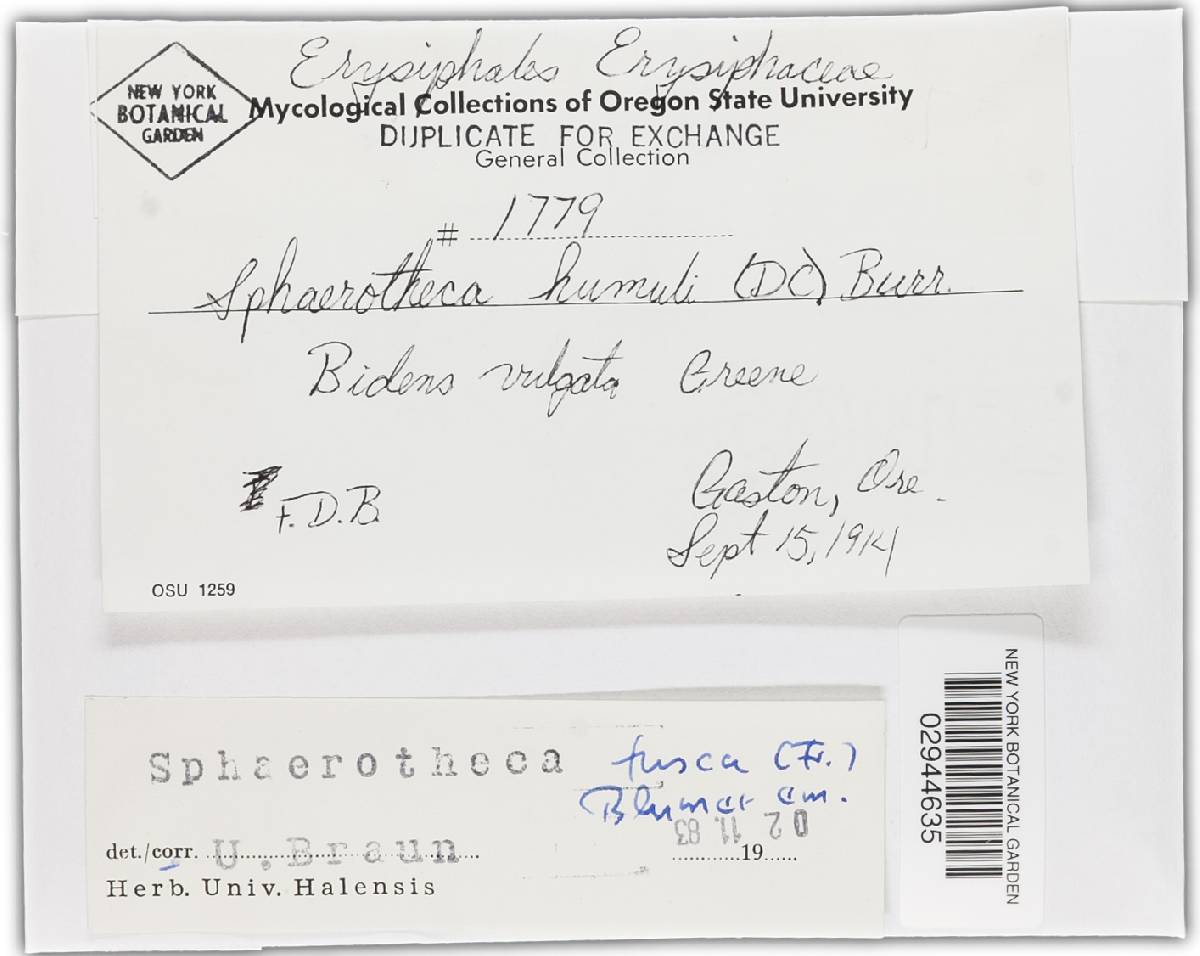 Erysiphales Erysiphaceae
NEW YORK
BOTANICAL
GARDEN
Mycological Collections of Oregon State University
DUPLICATE FOR EXCHANGE
General Collection
# 1779
Sphaerotheca humuli (DC) Burr.
Bidens vulgata Greene
F.D.B.
Gaston, Ore.
Sept 15, 1914
OSU 1259
NEW YORK BOTANICAL GARDEN
02944635
Sphaerotheca fusca (Fr.)
Blumer em.
02 11. 83
det./corr. U. Braun 19
Herb. Univ. Halensis